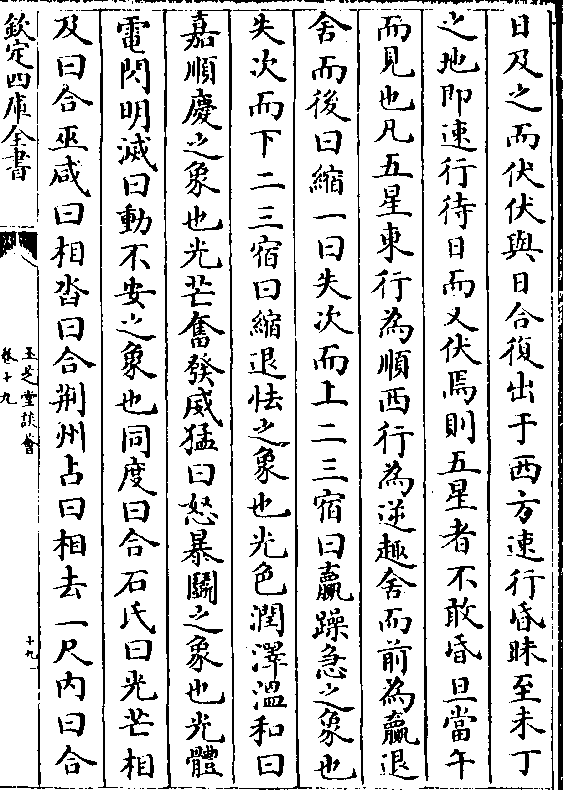 日及之而伏伏與日合復出于西方速行昏昧至未丁
之地即速行待日而又伏焉則五星者不敢昏旦當午
而見也凡五星東行為順西行為逆趣舍而前為贏退
舍而後曰縮一曰失次而上二三宿曰贏躁急之象也
失次而下二三宿曰縮退怯之象也光色潤澤溫和曰
嘉順慶之象也光芒奮發威猛曰怒暴鬭之象也光體
電閃明滅曰動不安之象也同度曰合石氏曰光芒相
及曰合巫咸曰相沓曰合荆州占曰相去一尺內曰合
欽定四庫全書
玉芝堂談薈
卷十九
十九